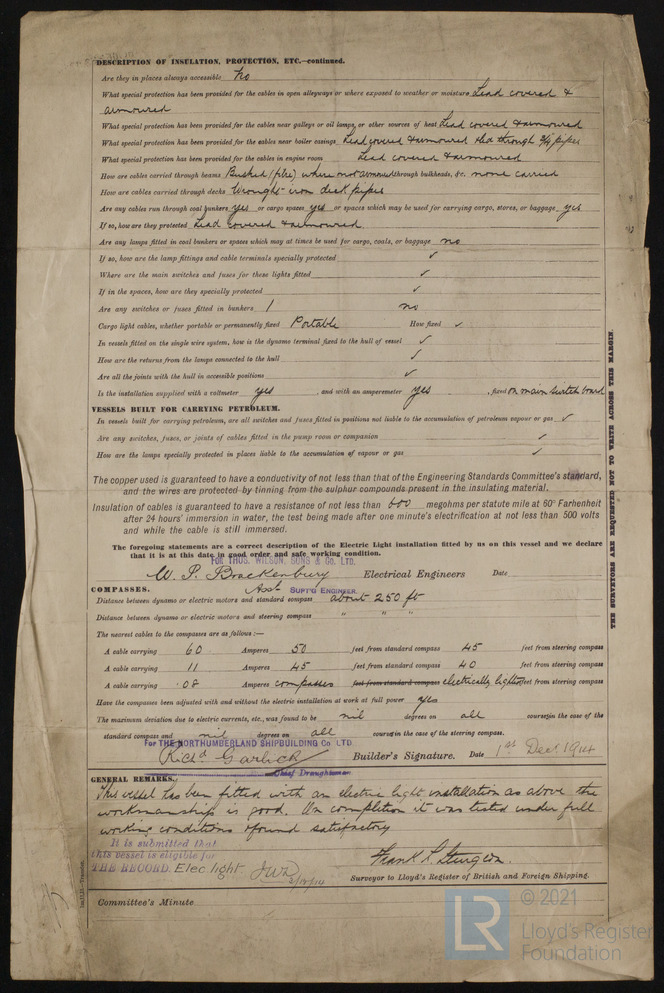 DESCRIPTION OF INSULATION, PROTECTION, ETC.—continued.
Are they in places always accessible no
What special protection has been provided for the cables in open alleyways or where exposed to weather or moisture Lead covered &
armoured
What special protection has been provided for the cables near galleys or oil lamps, or other sources of heat Lead covered & armoured
What special protection has been provided for the cables near boiler casings Lead covered & armoured & led through 3/4 pipes
What special protection has been provided for the cables in engine room Lead covered & armoured
How are cables carried through beams Bushed (fibre) where not armoured through bulkheads, &c. none carried
How are cables carried through decks Wrought-iron deck pipes
Are any cables run through coal bunkers yes or cargo spaces yes or spaces which may be used for carrying cargo, stores, or baggage yes
If so, how are they protected Lead covered & armoured.
Are any lamps fitted in coal bunkers or spaces which may at times be used for cargo, coals, or baggage no
If so, how are the lamp fittings and cable terminals specially protected ✓
Where are the main switches and fuses for these lights fitted ✓
If in the spaces, how are they specially protected ✓
Are any switches or fuses fitted in bunkers no
Cargo light cables, whether portable or permanently fixed Portable How fixed ✓
In vessels fitted on the single wire system, how is the dynamo terminal fixed to the hull of vessel ✓
How are the returns from the lamps connected to the hull ✓
Are all the joints with the hull in accessible positions ✓
Is the installation supplied with a voltmeter yes , and with an amperemeter yes , fixed on main switch board
VESSELS BUILT FOR CARRYING PETROLEUM.
In vessels built for carrying petroleum, are all switches and fuses fitted in positions not liable to the accumulation of petroleum vapour or gas ✓
Are any switches, fuses, or joints of cables fitted in the pump room or companion ✓
How are the lamps specially protected in places liable to the accumulation of vapour or gas ✓
The copper used is guaranteed to have a conductivity of not less than that of the Engineering Standards Committee's standard,
and the wires are protected by tinning from the sulphur compounds present in the insulating material.
Insulation of cables is guaranteed to have a resistance of not less than 600 megohms per statute mile at 60° Farhenheit
after 24 hours' immersion in water, the test being made after one minute's electrification at not less than 500 volts
and while the cable is still immersed.
The foregoing statements are a correct description of the Electric Light installation fitted by us on this vessel and we declare
that it is at this date in good order and safe working condition.
FOR THOS. WILSON, SONS & Co. LTD.
W. P. Brackenbury Electrical Engineers Date
Asst. SUPT'G ENGINEER.
COMPASSES.
Distance between dynamo or electric motors and standard compass about 250 ft
Distance between dynamo or electric motors and steering compass " " "
The nearest cables to the compasses are as follows:—
A cable carrying 60 Amperes 50 feet from standard compass 45 feet from steering compass
A cable carrying 11 Amperes 45 feet from standard compass 40 feet from steering compass
A cable carrying .08 Amperes compasses feet from standard compass electrically lighted feet from steering compass
Have the compasses been adjusted with and without the electric installation at work at full power yes
The maximum deviation due to electric currents, etc., was found to be nil degrees on all courses in the case of the
standard compass and nil degrees on all courses in the case of the steering compass.
For THE NORTHUMBERLAND SHIPBUILDING Co. LTD
Richd Garlick Builder's Signature. Date 1st Dec. 1914
Chief Draughtsman
GENERAL REMARKS.
This vessel has been fitted with an electric light installation as above the
workmanship is good. On completion it was tested under full
working conditions & found satisfactory
It is submitted that
this vessel is eligible for
THE RECORD. Elec light JWD
Frank L Sturgeon.
Surveyor to Lloyd's Register of British and Foreign Shipping.
Committee's Minute
THE SURVEYORS ARE REQUESTED NOT TO WRITE ACROSS THIS MARGIN.
LR
© 2021
Lloyd's Register
Foundation